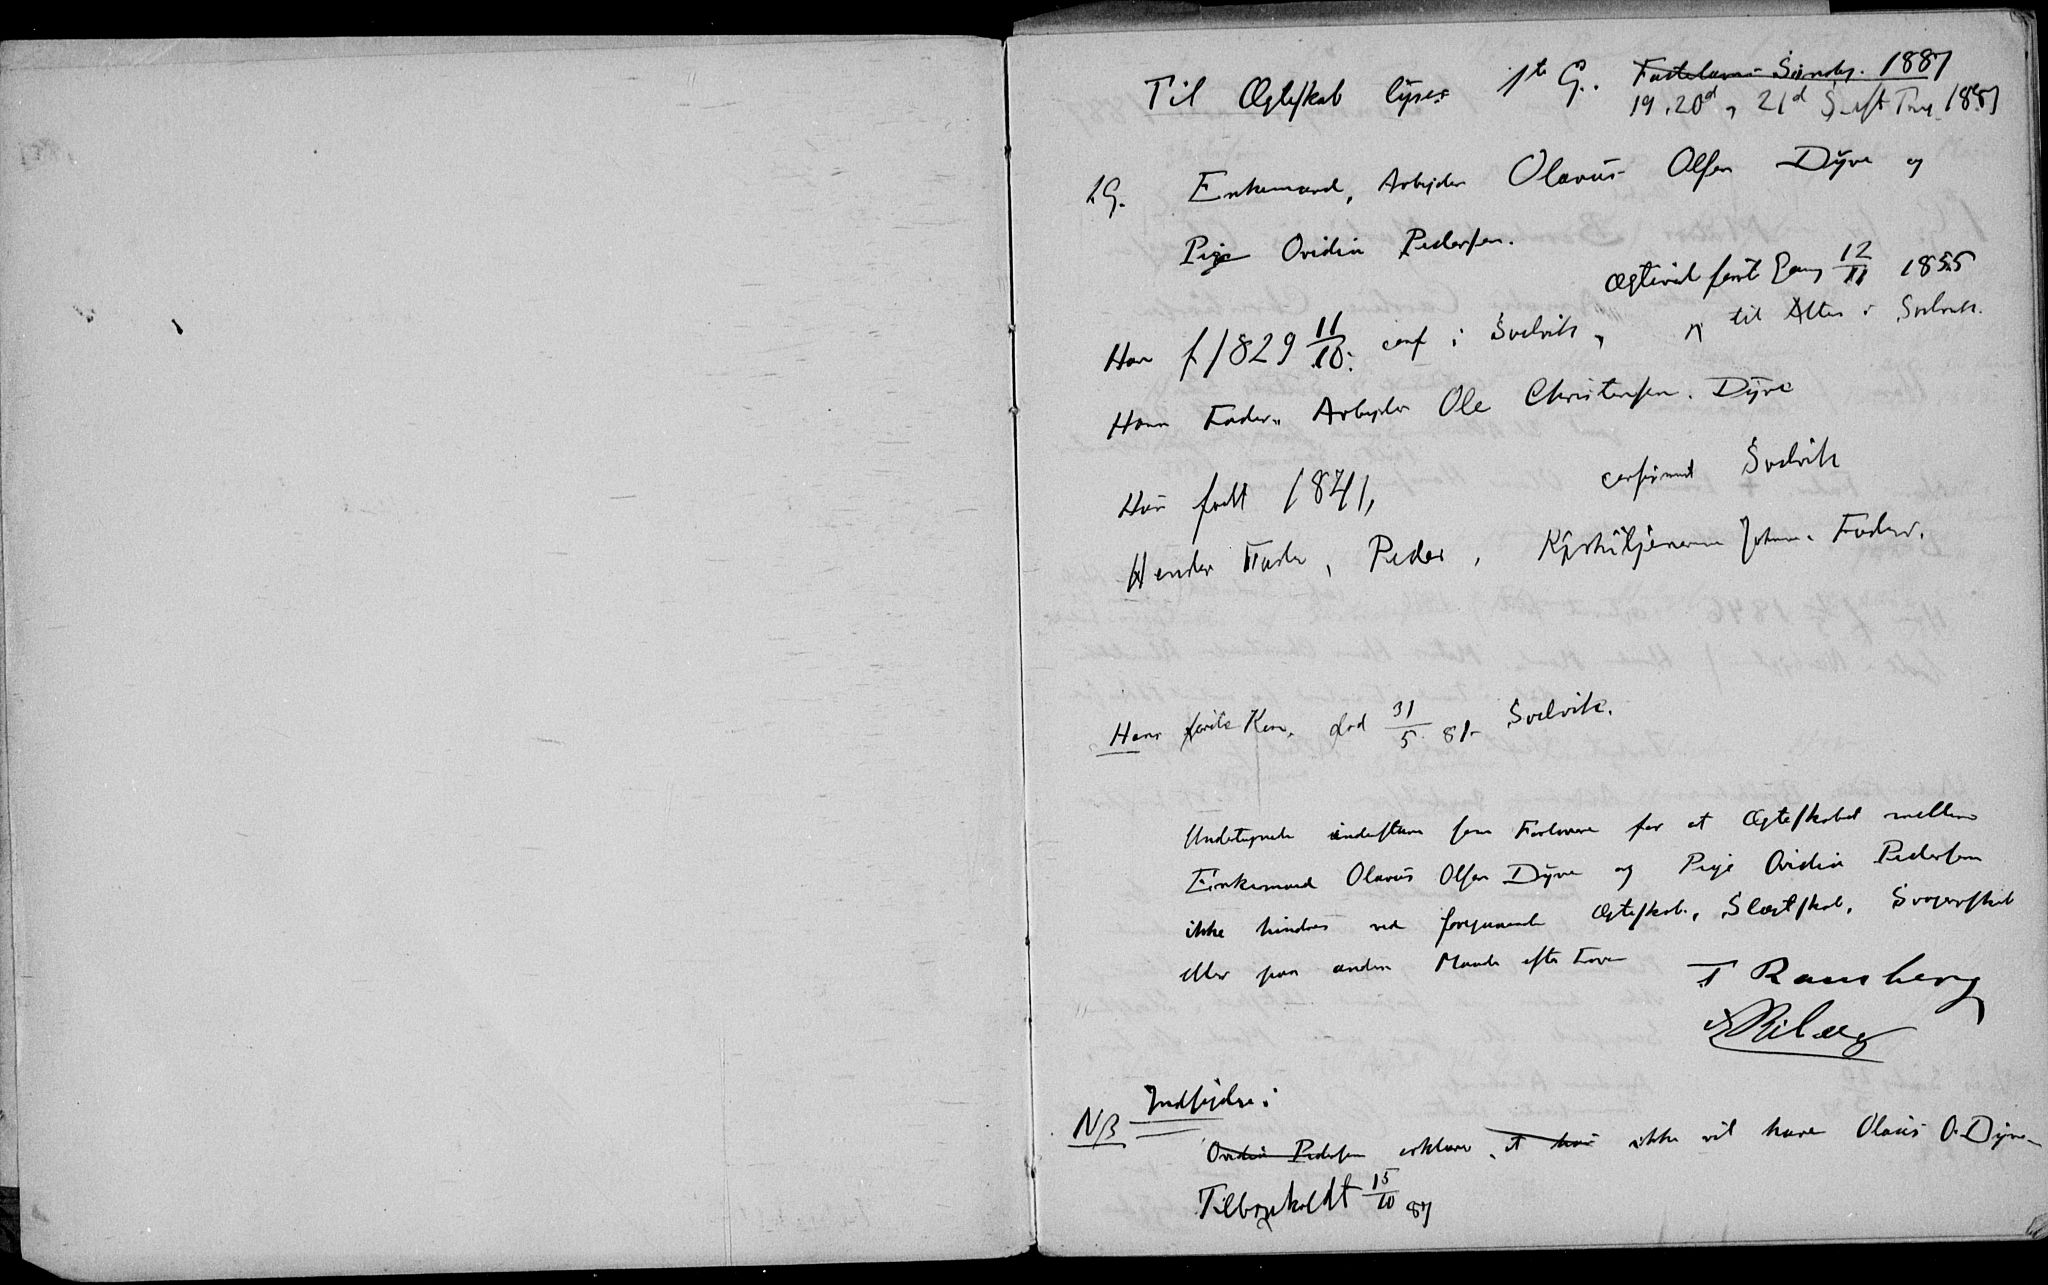 Til Ægteskab lyses 1te G. Fastelavns Søndg. 1887
19. 20d, 21d S. eft Tref 1887
1G. Enkemand, Arbejder Olavus Olsen Dyve og
Pige Ovidia Pedersen.
Ægteviet først Gang 12/11 1855
Han f 1829 11/10. conf i Svelvik, til Alters i Svelvik.
Hans Fader, Arbejder Ole Christensen Dyve
Hun født 1841, confirmeret Svelvik
Hendes Fader, Peder, Fader.
Hans første Kone, død 31/5 81 Svelvik.
Undertegnede indestaar som Forlovere for at Ægteskabet mellem
Enkemand Olavus Olsen Dyve og Pige Ovidia Pedersen
ikke hindres ved foregaaende Ægteskab, Slægtskab, Svogerskab
eller paa anden Maade efter Loven
T Ramberg
NB Indsigelse:
Ovidia Pedersen erklærer, at hun ikke vil have Olaus O. Dyve
Tilbagekaldt 15/10 87